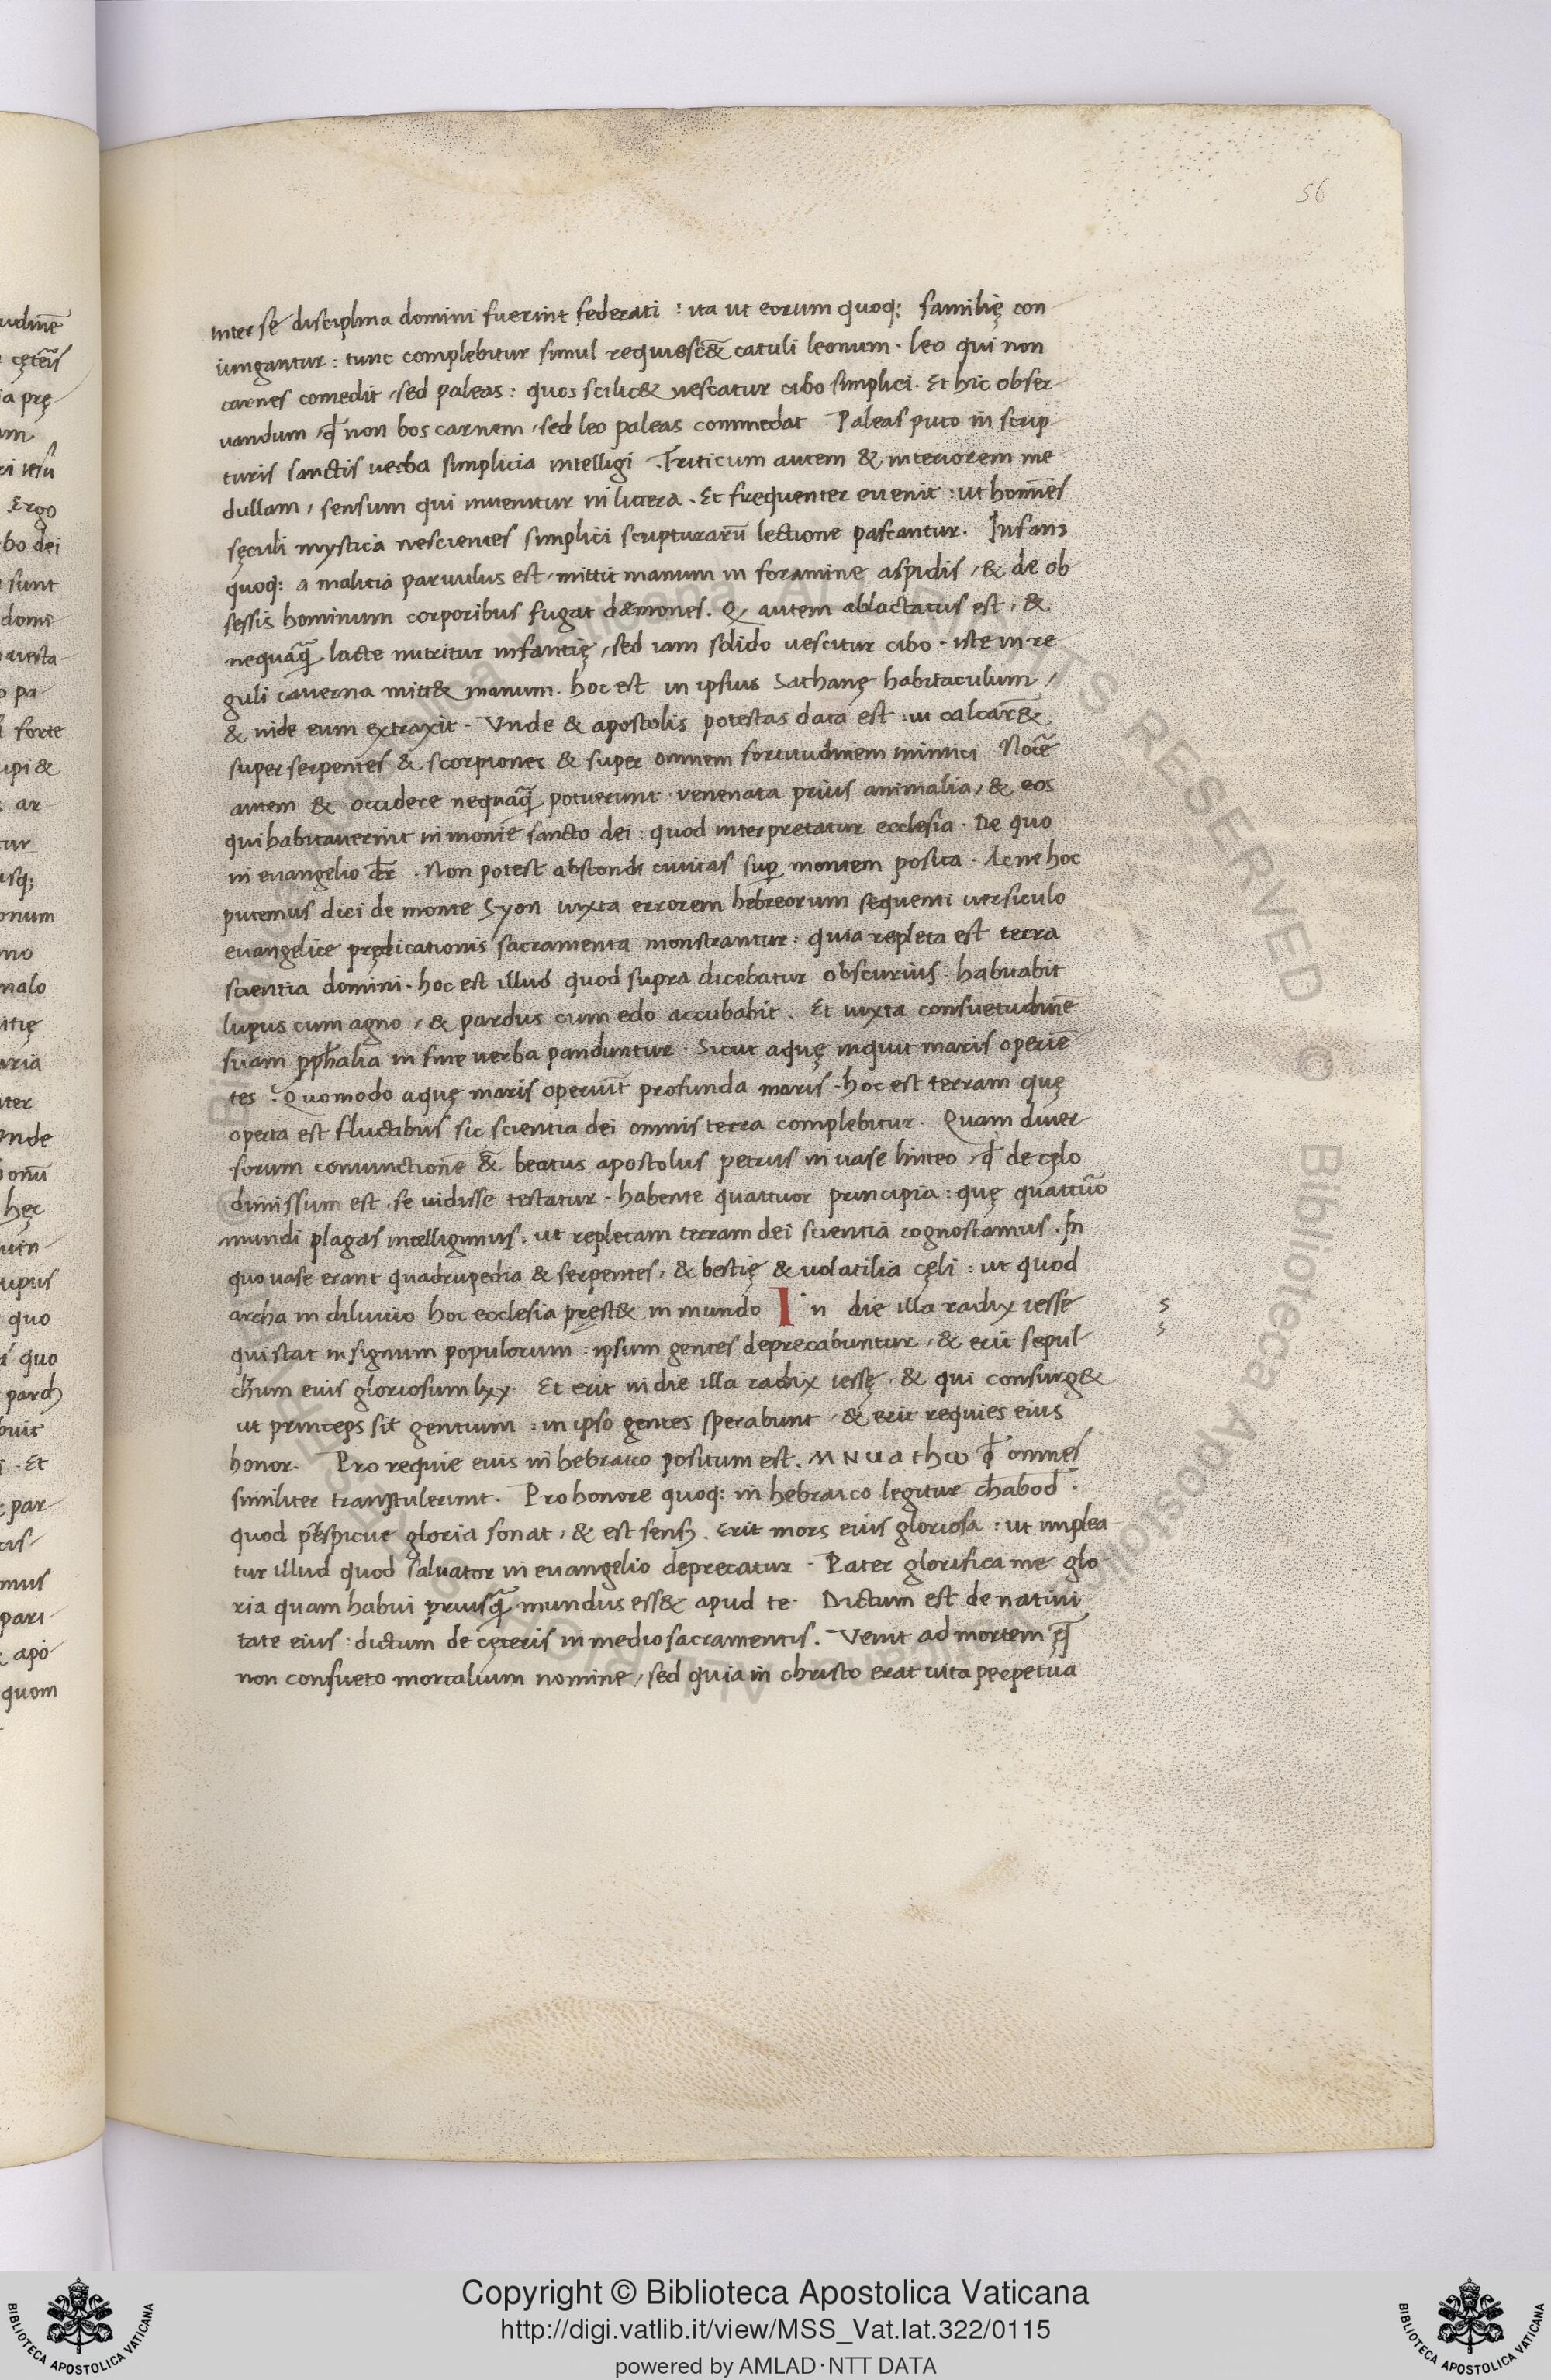 56
inter se disciplina domini fuerint federati : ita ut eorum quoq; familię con
iungantur : tunc complebitur simul requiesc&̄ catuli leonum · leo qui non
carnes comedit , sed paleas : quos scilic& uescatur cibo simplici . Et hic obser
uandum , qđ non bos carnem , sed leo paleas commedat . Paleas puto in scrip
turis sanctis uerba simplicia intelligi . Triticum autem & interiorem me
dullam , sensum qui inuenitur in littera . Et frequenter euenit : ut homīes
sęculi mystica nescientes simplici scripturarū lectione pascantur . Infans
quoq: a malitia paruulus est , mittit manum in foramine aspidis , & de ob
sessis hominum corporibus fugat dæmones . Q, autem ablactatus est , &
nequāq̄ lacte nutritur infantię , sed iam solido uescitur cibo . iste in re
guli cauerna mitt& manum . hoc est in ipsius Sathanę habitaculum ,
& inde eum extraxit . Vnde & apostolis potestas data est : ut calcar̄&
super serpentes & scorpiones & super omnem fortitudinem inimici Nocē
autem & occidere nequāq̄ potuerunt . venenata prius animalia , & eos
qui habitauerint in monte sancto dei : quod interpretatur ecclesia . De quo
in euangelio dr̄ . Non potest abscondi ciuitas sup̱ montem posita . Ac ne hoc
putemus dici de monte Syon iuxta errorem hebreorum sequenti uersiculo
euangelice prędicationis sacramenta monstrantur : quia repleta est terra
scientia domini . hoc est illud quod supra dicebatur obscurius . habitabit
lupus cum agno , & pardus cum edo accubabit . Et iuxta consuetudinē
suam pp̄halia in fine uerba panduntur . Sicut aquę inquit maris operiē
tes . Quomodo aquę maris operiūt profunda maris . hoc est terram quę
operta est fluctibus sic scientia dei omnis terra complebitur . Quam diuer
sorum coniunctionē &̄ beatus apostolus petrus in uase linteo , qđ de cęlo
dimissum est , se uidisse testatur . habente quattuor principia : quę quattuō
mundi plagas intelligimus : ut repletam terram dei scientia cognoscamus . In
quo uase erant quadrupedia & serpentes , & bestię & uolatilia cęli : ut quod
archa in diluuio hoc ecclesia pręst& in mundo In die illa radix iesse
qui stat in signum populorum : ipsum gentes deprecabuntur , & erit sepul
ch̄um eius gloriosum lxx . Et erit in die illa radix iessę , & qui consurg&
ut princeps sit gentium : in ipso gentes sperabunt , & erit requies eius
honor . Pro requie eius in hebraico positum est . M N U a thω qđ omnes
similiter transtulerunt . Pro honore quoq: in hebraico legitur ch̄abod̄ .
quod p̄spicue gloria sonat , & est sensꝫ . Erit mors eius gloriosa : ut implea
tur illud quod saluator in euangelio deprecatur . Pater glorifica me glo
ria quam habui priusq̄ mundus ess& apud te . Dictum est de natiui
tate eius : dictum de cęteris in medio sacramentis . Venit ad mortem q̄
non consueto mortalium nomine , sed quia in christo erat uita perpetua
s
s
Copyright © Biblioteca Apostolica Vaticana
http://digi.vatlib.it/view/MSS_Vat.lat.322/0115
powered by AMLAD·NTT DATA